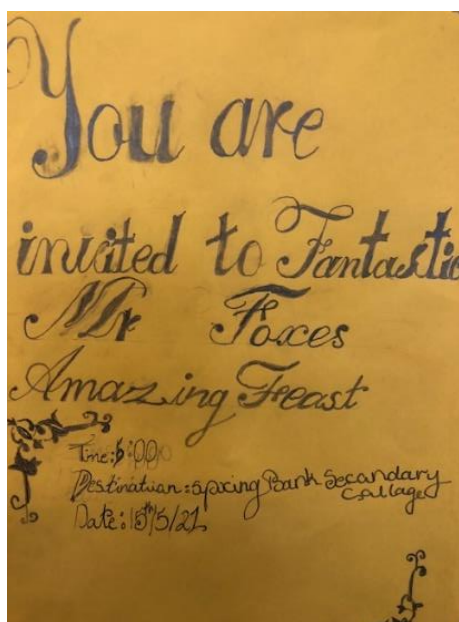 You are
invited to Fantastic
Mr Foxes
Amazing Feast
Time: 6:00
Destination: Spring Bank Secondary
Collage
Date: 15th/5/21